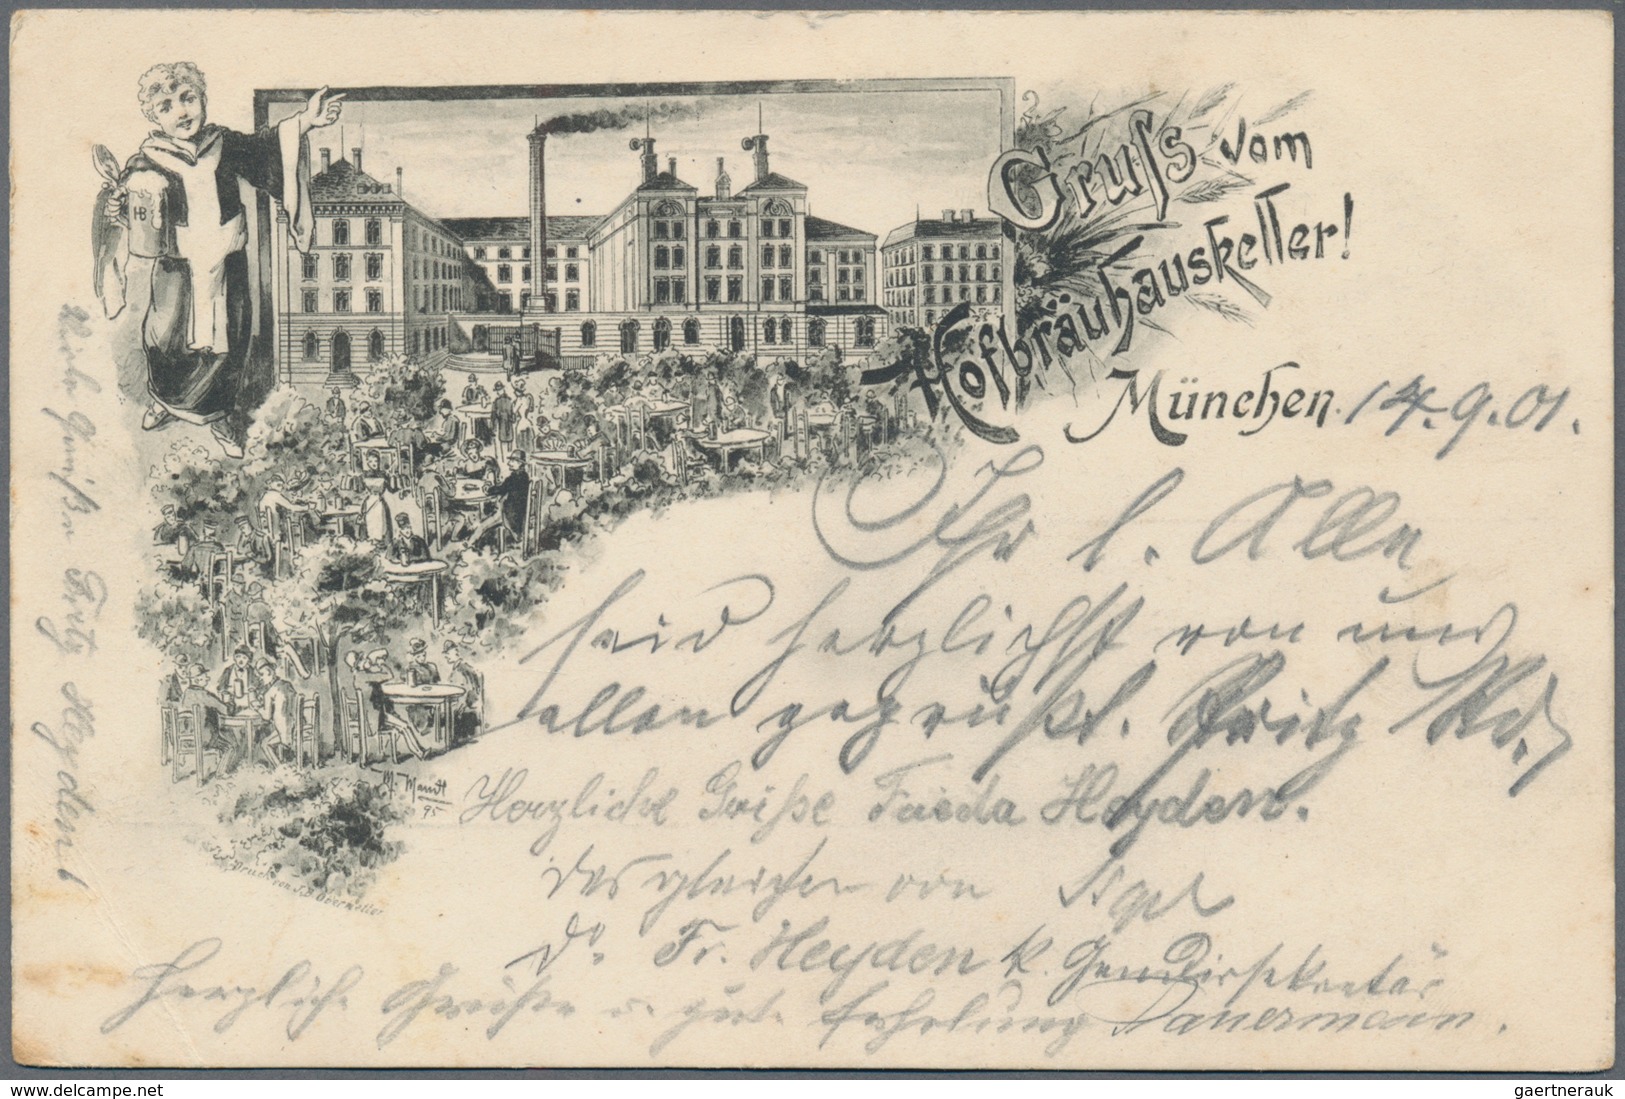 Gruss vom
Hofbräuhauskeller!
München 14.9.01.
HB
Ihr l. Alle
seid herzlichst von uns
allen gegrüßt. Fritz
Herzliche Grüße Frieda Heyden.
desgleichen von
do. Fr. Heyden k.
Herzliche Grüße u. gute Erholung Dauermann.
Viele Grüße Fritz Heyden
M. Mandt
95
Druck von J. B. Obernetter
delcampe.net
gaertnerauk